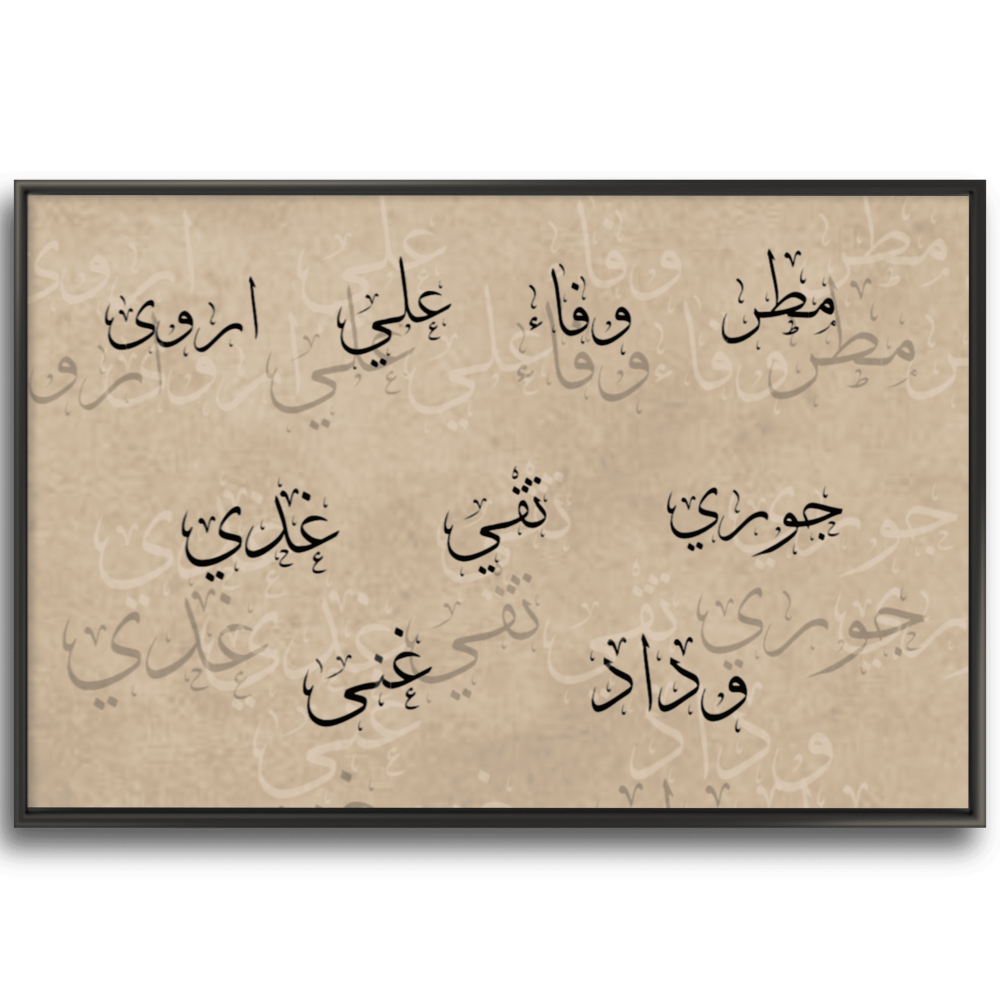 مطر وفاء علي اروى
جوري تقي غذي
وداد غنى